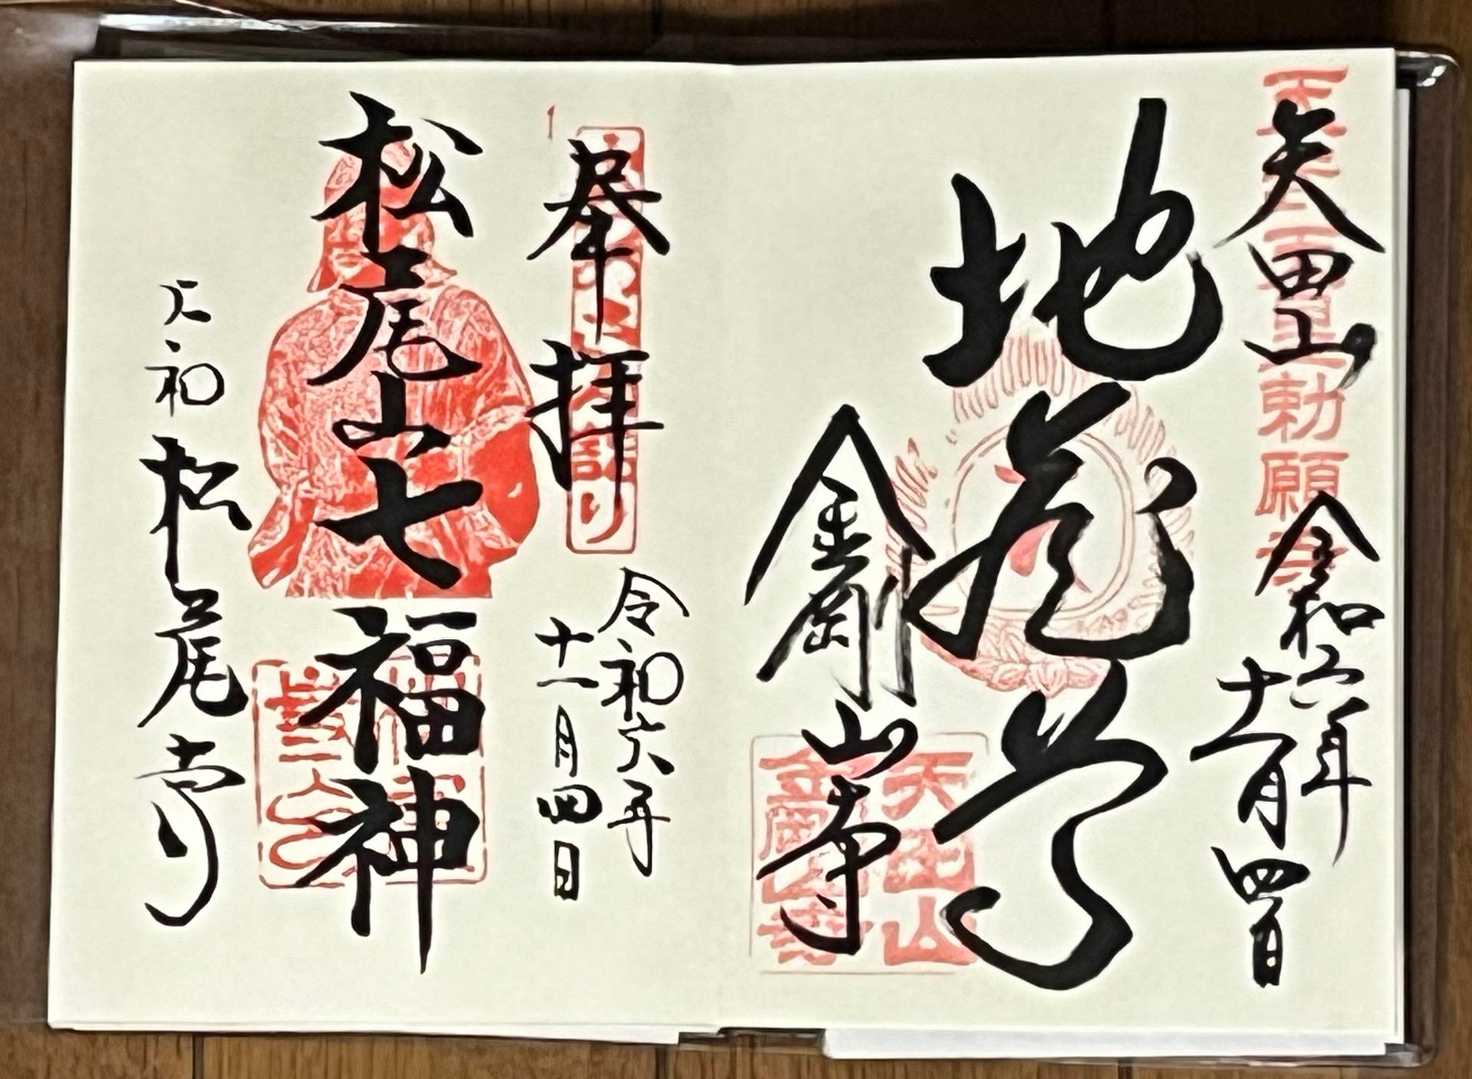 矢田山
天武天皇勅願寺
令和六年
十一月四日
地蔵尊
金剛山寺
矢田山
金剛山寺
奉拝
令和六年
十一月四日
松尾山七福神
大和松尾寺